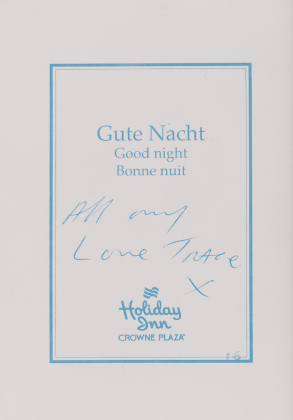 Gute Nacht
Good night
Bonne nuit
All my
Love Trace
X
Holiday
Inn
CROWNE PLAZA®